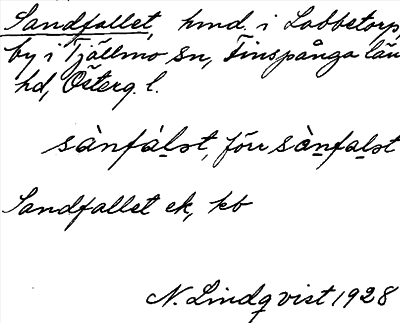 Sandfallet, hmd. i Lobbetorp,
by i Tjällmo sn, Finspånga län
hd, Österg. l.
sànfálst, förr sànfalst
Sandfallet ek, kb
N. Lindqvist 1928